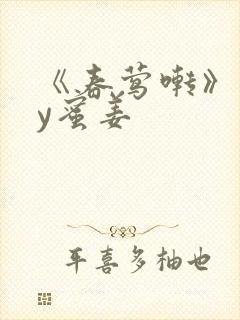 《春莺啭》
y蜜姜
平喜多柚也